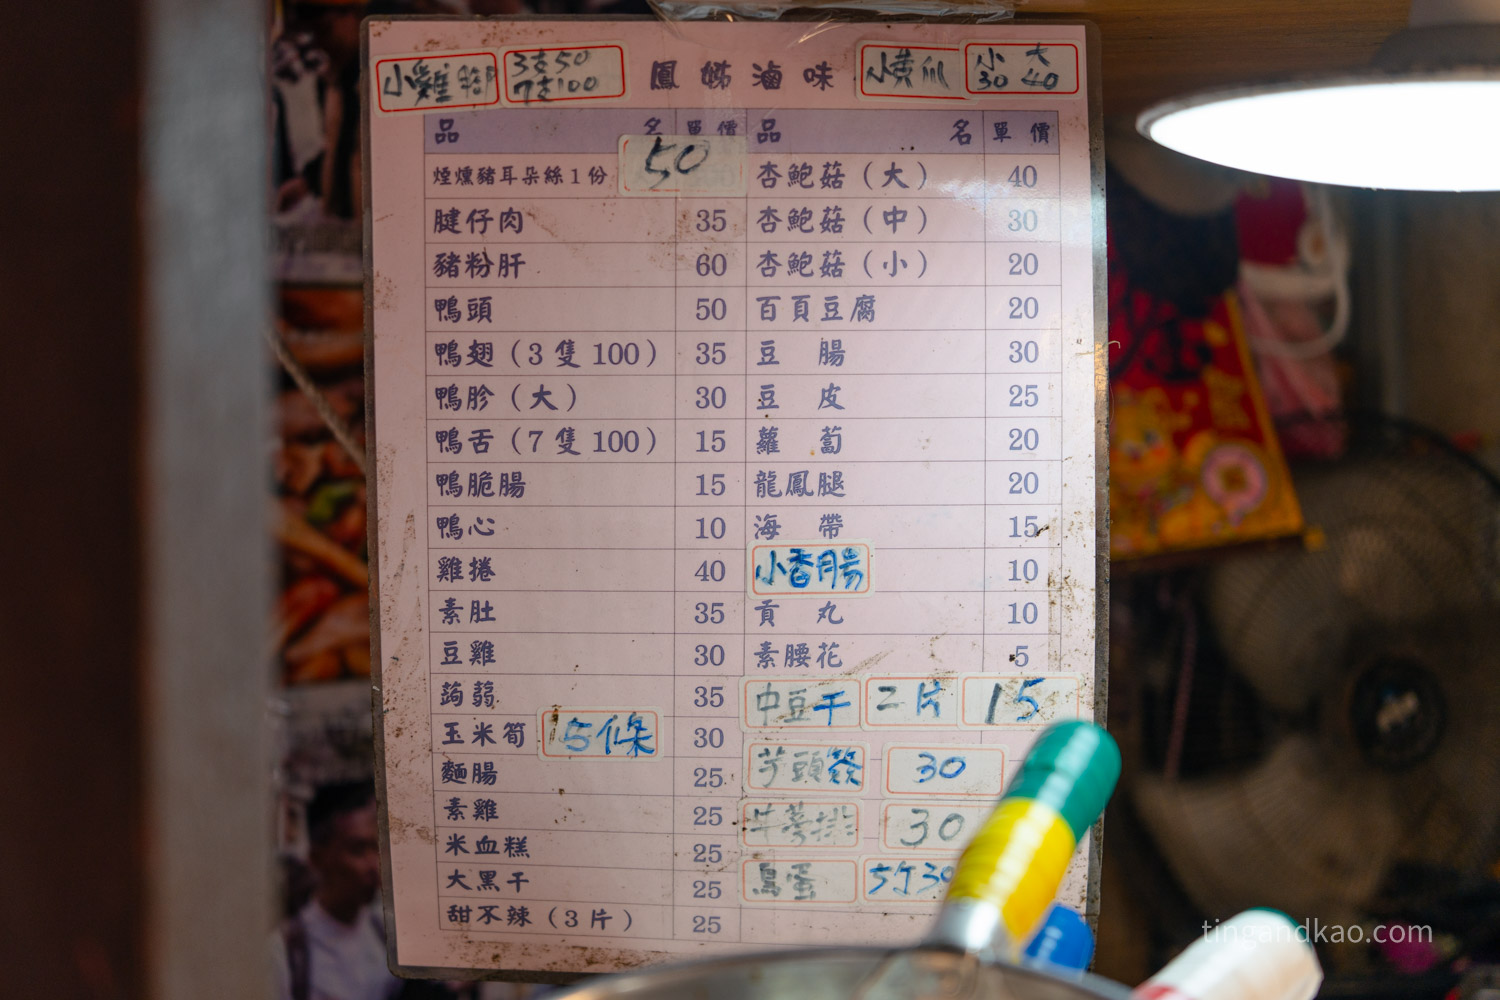 小雞腳 3支50 7支100 鳳姊滷味 小黃瓜 小30 大40
品名 單價 品名 單價
煙燻豬耳朵絲1份 50 杏鮑菇（大） 40
腱仔肉 35 杏鮑菇（中） 30
豬粉肝 60 杏鮑菇（小） 20
鴨頭 50 百頁豆腐 20
鴨翅（3隻100） 35 豆腸 30
鴨胗（大） 30 豆皮 25
鴨舌（7隻100） 15 蘿蔔 20
鴨脆腸 15 龍鳳腿 20
鴨心 10 海帶 15
雞捲 40 小香腸 10
素肚 35 貢丸 10
豆雞 30 素腰花 5
蒟蒻 35 中豆干 二片 15
玉米筍 5條 30 芋頭簽 30
麵腸 25
素雞 25 牛蒡排 30
米血糕 25
大黑干 25 鳥蛋 30
甜不辣（3片） 25
tingandkao.com